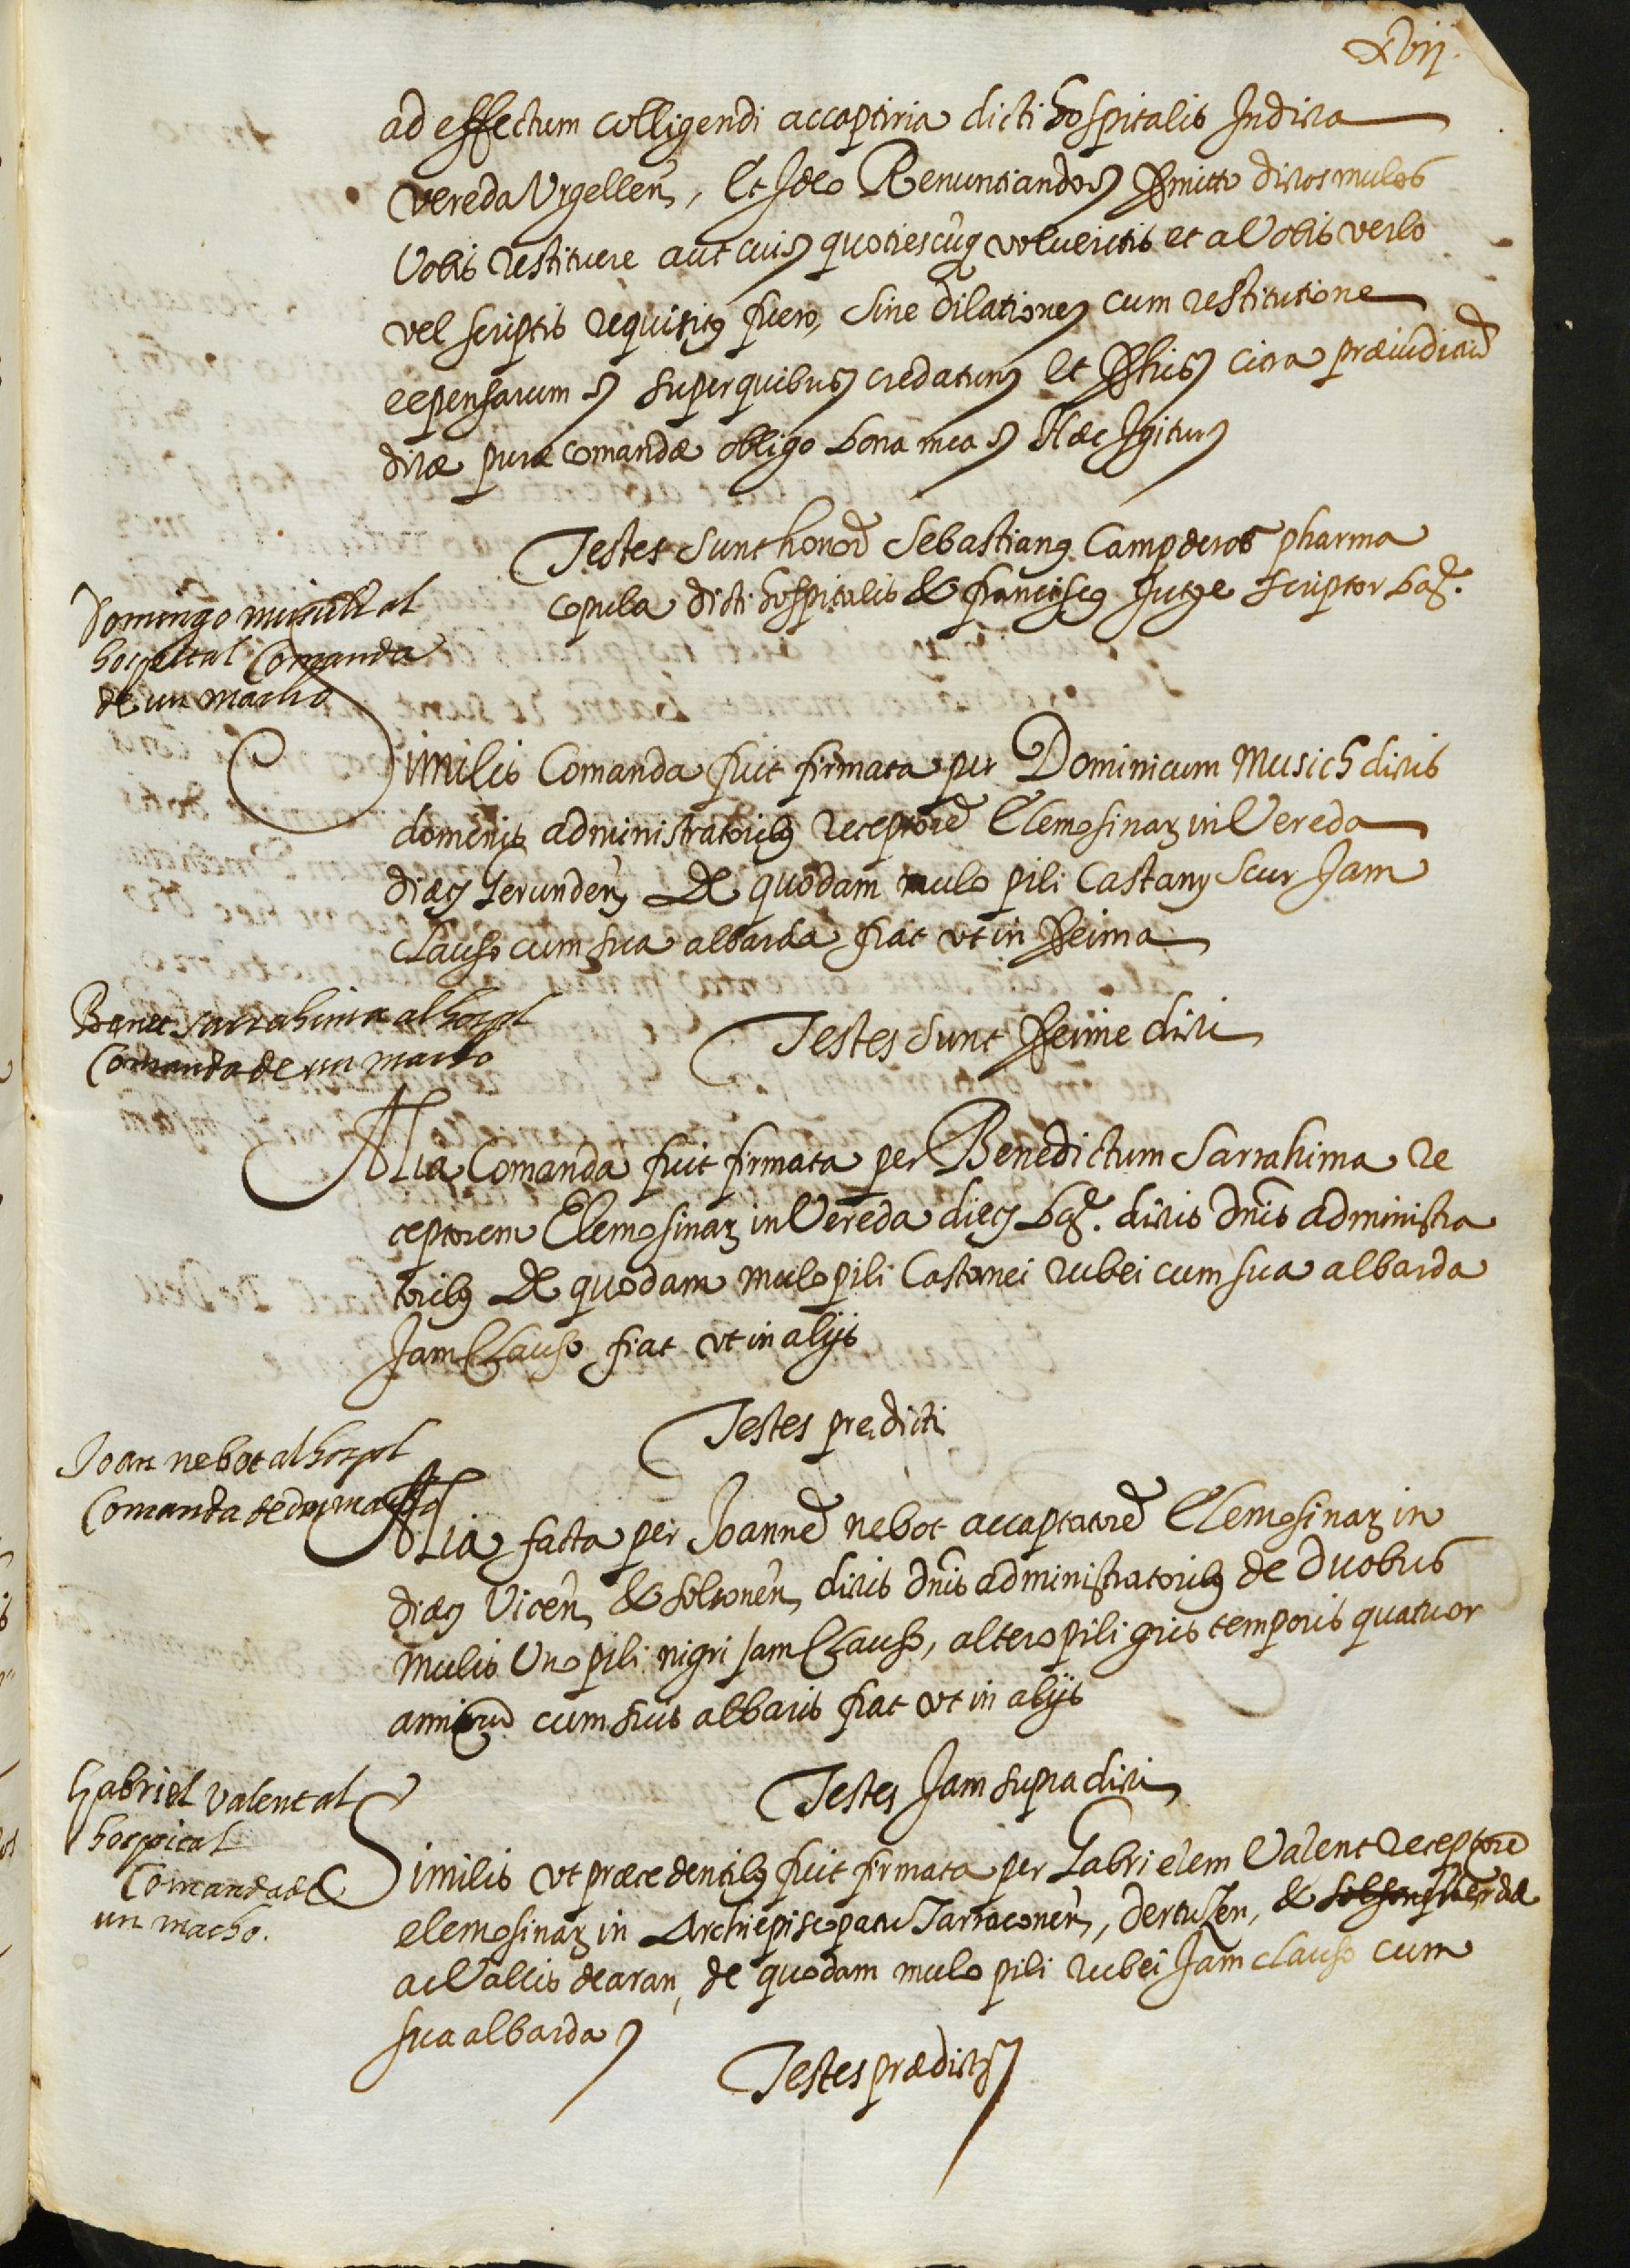 xvij.
ad effectum colligendi accaptiria dicti hospitalis Indicta
vereda Urgellen, Et Ideo Renuntiando Promitto dictos mulos
Vobis restituere aut cui quotiescuq volueritis et a Vobis verbo
vel scriptis requisitus fuero, sine dilatione cum restitutione
expensarum super quibus credatur Et Prohis citra præiudiciu
dictæ puræ comandæ obligo bona mea Hæc Igitur
Testes sunt honor Sebastianus Campderos pharma
copula dicti hospitalis & franciscus Jutge scriptor bar.
Domingo musich al
hospital Comanda
de un macho
Similis Comanda fuit firmata per Dominicum Musich dictis
dominis administratoribus receptore Elemosinaz in Vereda
diæc Gerunden De quodam mulo pili Castany scur Jam
clauso cum sua albarda fiat ut in Prima
Testes sunt Prime dicti
Benet sarrahima al hospl
Comanda de un macho
Alia Comanda fuit firmata per Benedictum Sarrahima re
ceptorem Elemosinaz in Vereda diec bar. dictis dnis administra
toribus De quodam mulo pili Castanei rubei cum sua albarda
Jam Clauso fiat ut in alijs
Testes predicti
Joan nebot al hospl
Comanda de dos machos
Alia facta per Joanne nebot accaptatore Elemosinaz in
diæc Vicen & solsonen dictis dnis administratoribus de duobus
mulis Uno pili nigri Jam Clauso, altero pili gris temporis quatuor
annoru cum suis albaris fiat ut in alijs
Testes Jam supra dicti
Gabriel Valent al
hospital
Comanda de
un macho.
Similis ut præcedentibus fuit firmata per Gabrielem Valent receptore
elemosinaz in Archiepiscopatu Tarraconen, dertuzen, & Illerdæ
ac Vallis de aran, de quodam mulo pili rubei Jam clauso cum
sua albarda
Testes prædicti